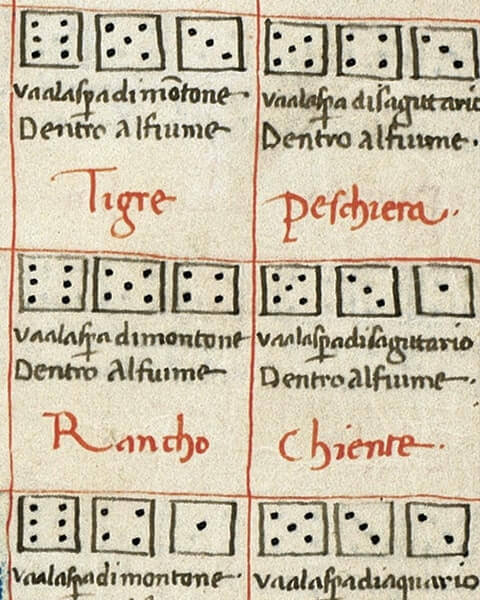 vaalasp̱a di mōtone·
Dentro alfiume
Tigre
vaalasp̱a disagittario
Dentro alfiume.
peschiera.
vaalasp̱a dimontone
Dentro alfiume
Rancho
vaalasp̱a disagittario
Dentro alfiume.
Chiente.
vaalasp̱a dimontone·
vaalasp̱a diaquario